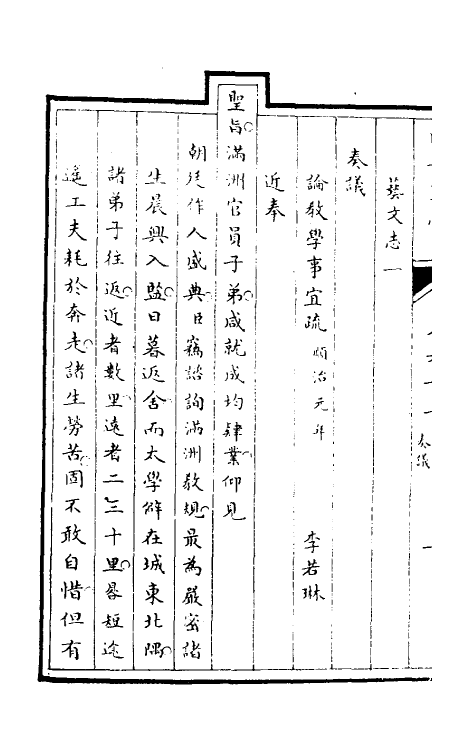 藝文志一
奏議
論教學事宜疏 順治元年 李若琳
近奉
聖旨滿洲官員子弟咸就成均肄業仰見
朝廷作人盛典臣竊諮詢滿洲教規最為嚴密諸
生晨興入監日暮返舍而太學僻在城東北隅
諸弟子往返近者數里遠者二三十里晷短途
遙工夫耗於奔走諸生勞苦固不敢自惜但有